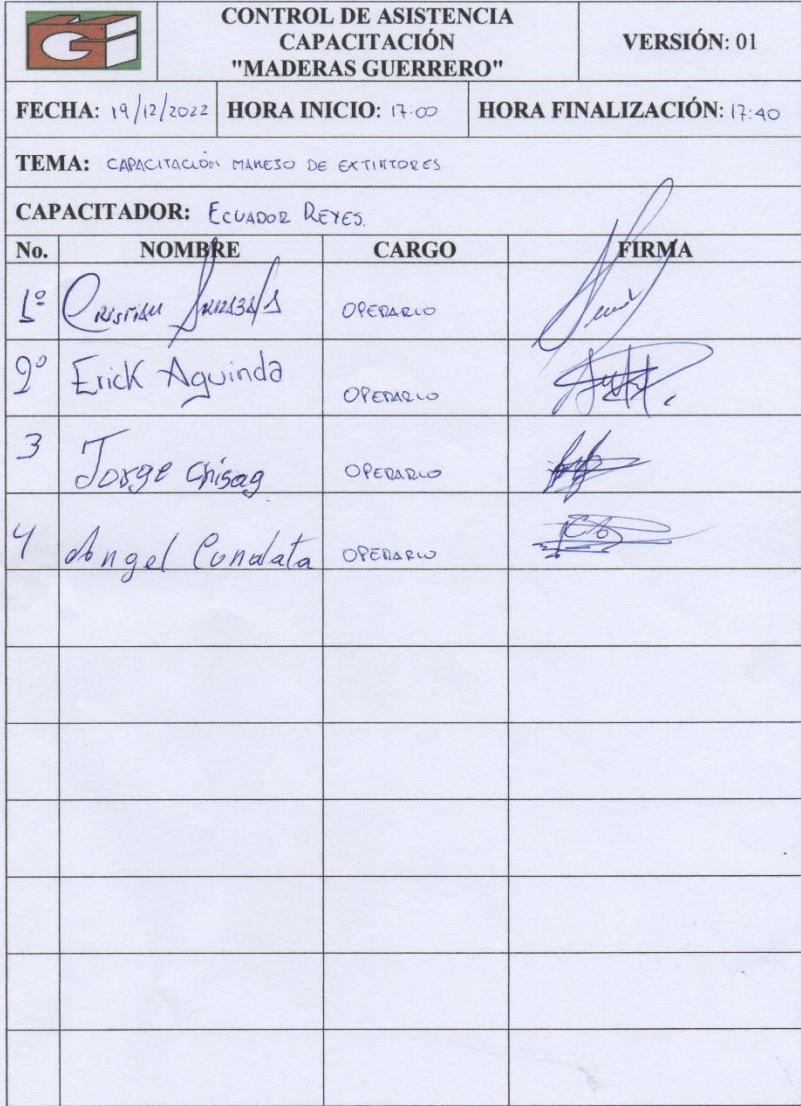 CONTROL DE ASISTENCIA
CAPACITACIÓN
"MADERAS GUERRERO"
VERSIÓN: 01
FECHA: 19/12/2022 HORA INICIO: 17:00 HORA FINALIZACIÓN: 17:40
TEMA: CAPACITACIÓN MANEJO DE EXTINTORES
CAPACITADOR: ECUADOR REYES.
No. NOMBRE CARGO FIRMA
1º CRISTIAN OPERARIO
2º Erick Aguinda OPERARIO
3 Jorge Chisag OPERARIO
4 Angel Cundata OPERARIO